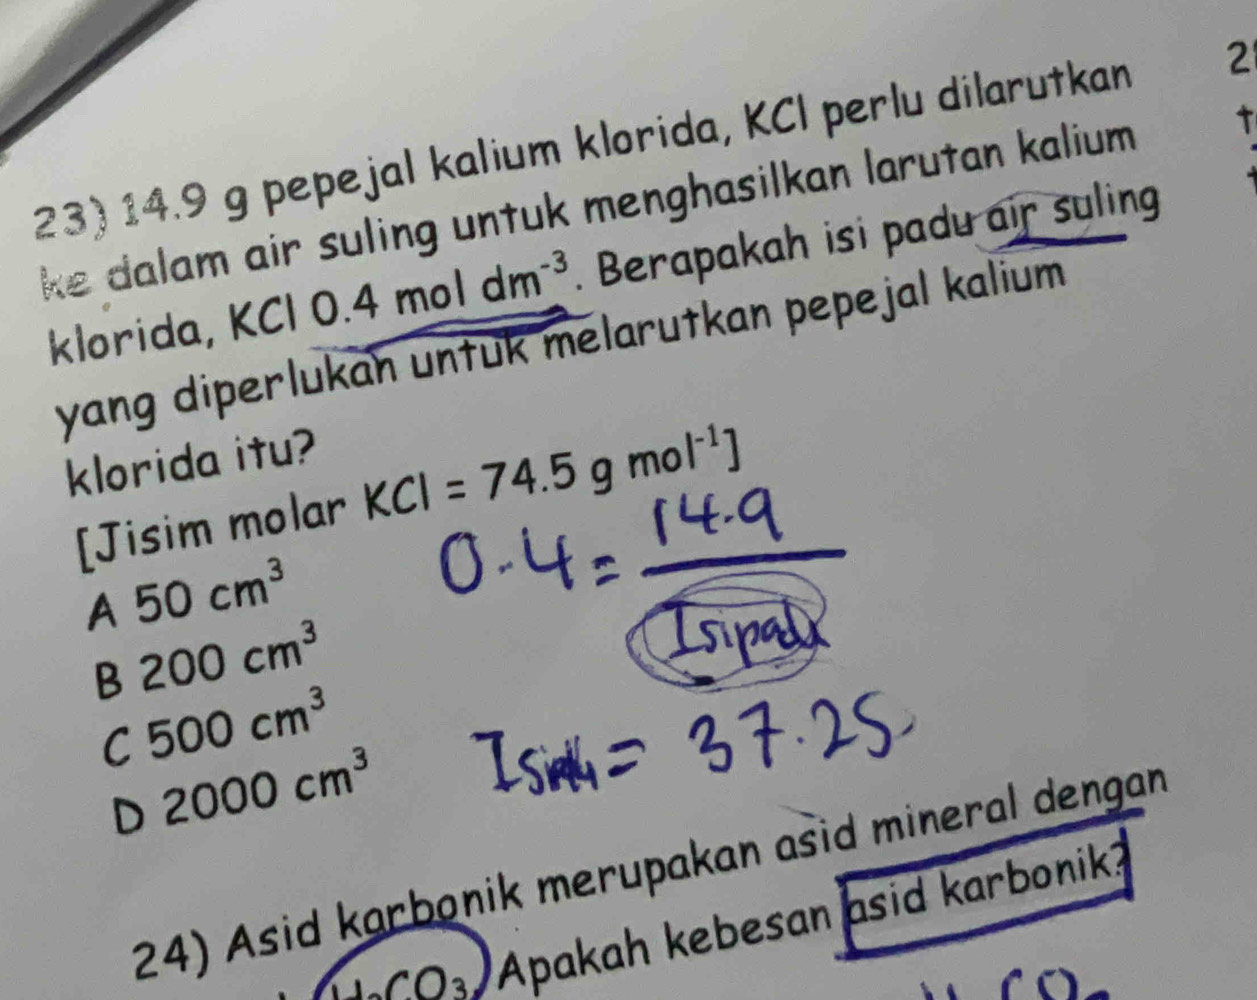 23) 14.9 g pepejal kalium klorida, KCl perlu dilarutkan
ke dalam air suling untuk menghasilkan larutan kalium
klorida, KCl 0.4 mol dm⁻³. Berapakah isi padu air suling
yang diperlukan untuk melarutkan pepejal kalium
klorida itu?
[Jisim molar KCl = 74.5 g mol⁻¹]
A 50 cm³
B 200 cm³
C 500 cm³
D 2000 cm³
0.4 = 14.9
Isipadu
= 37.25
24) Asid karbonik merupakan asid mineral dengan
H₂CO₃. Apakah kebesan asid karbonik?